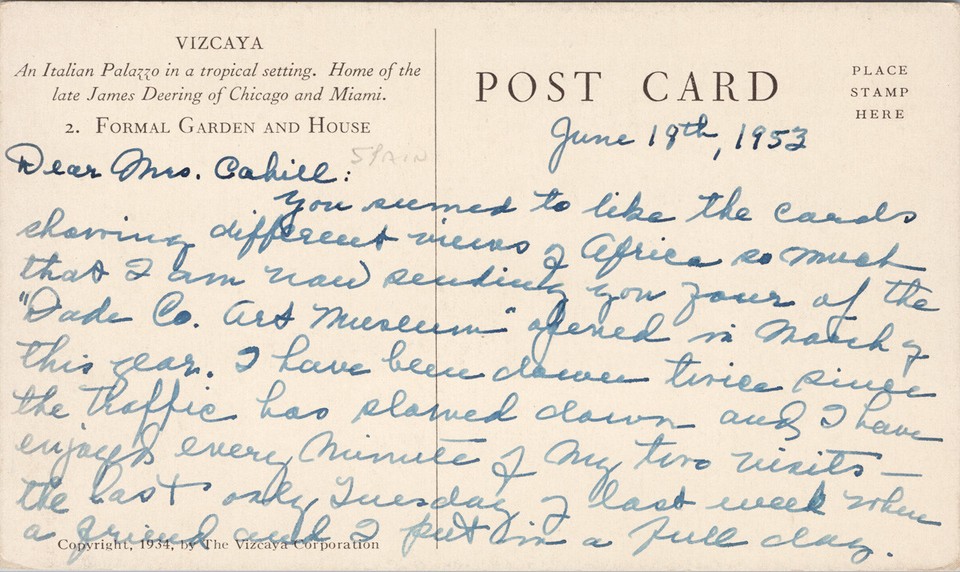 VIZCAYA
An Italian Palazzo in a tropical setting. Home of the
late James Deering of Chicago and Miami.
2. FORMAL GARDEN AND HOUSE
POST CARD
PLACE
STAMP
HERE
June 18th, 1953
SPAIN
Dear Mrs. Cahill:
You seemed to like the cards
showing different views of Africa so much
that I am now sending you four of the
"Dade Co. Art Museum" opened in March of
this year. I have been down twice since
the traffic has slowed down and I have
enjoyed every minute of my two visits —
the last only Tuesday of last week when
a friend and I put in a full day.
Copyright, 1934, by The Vizcaya Corporation